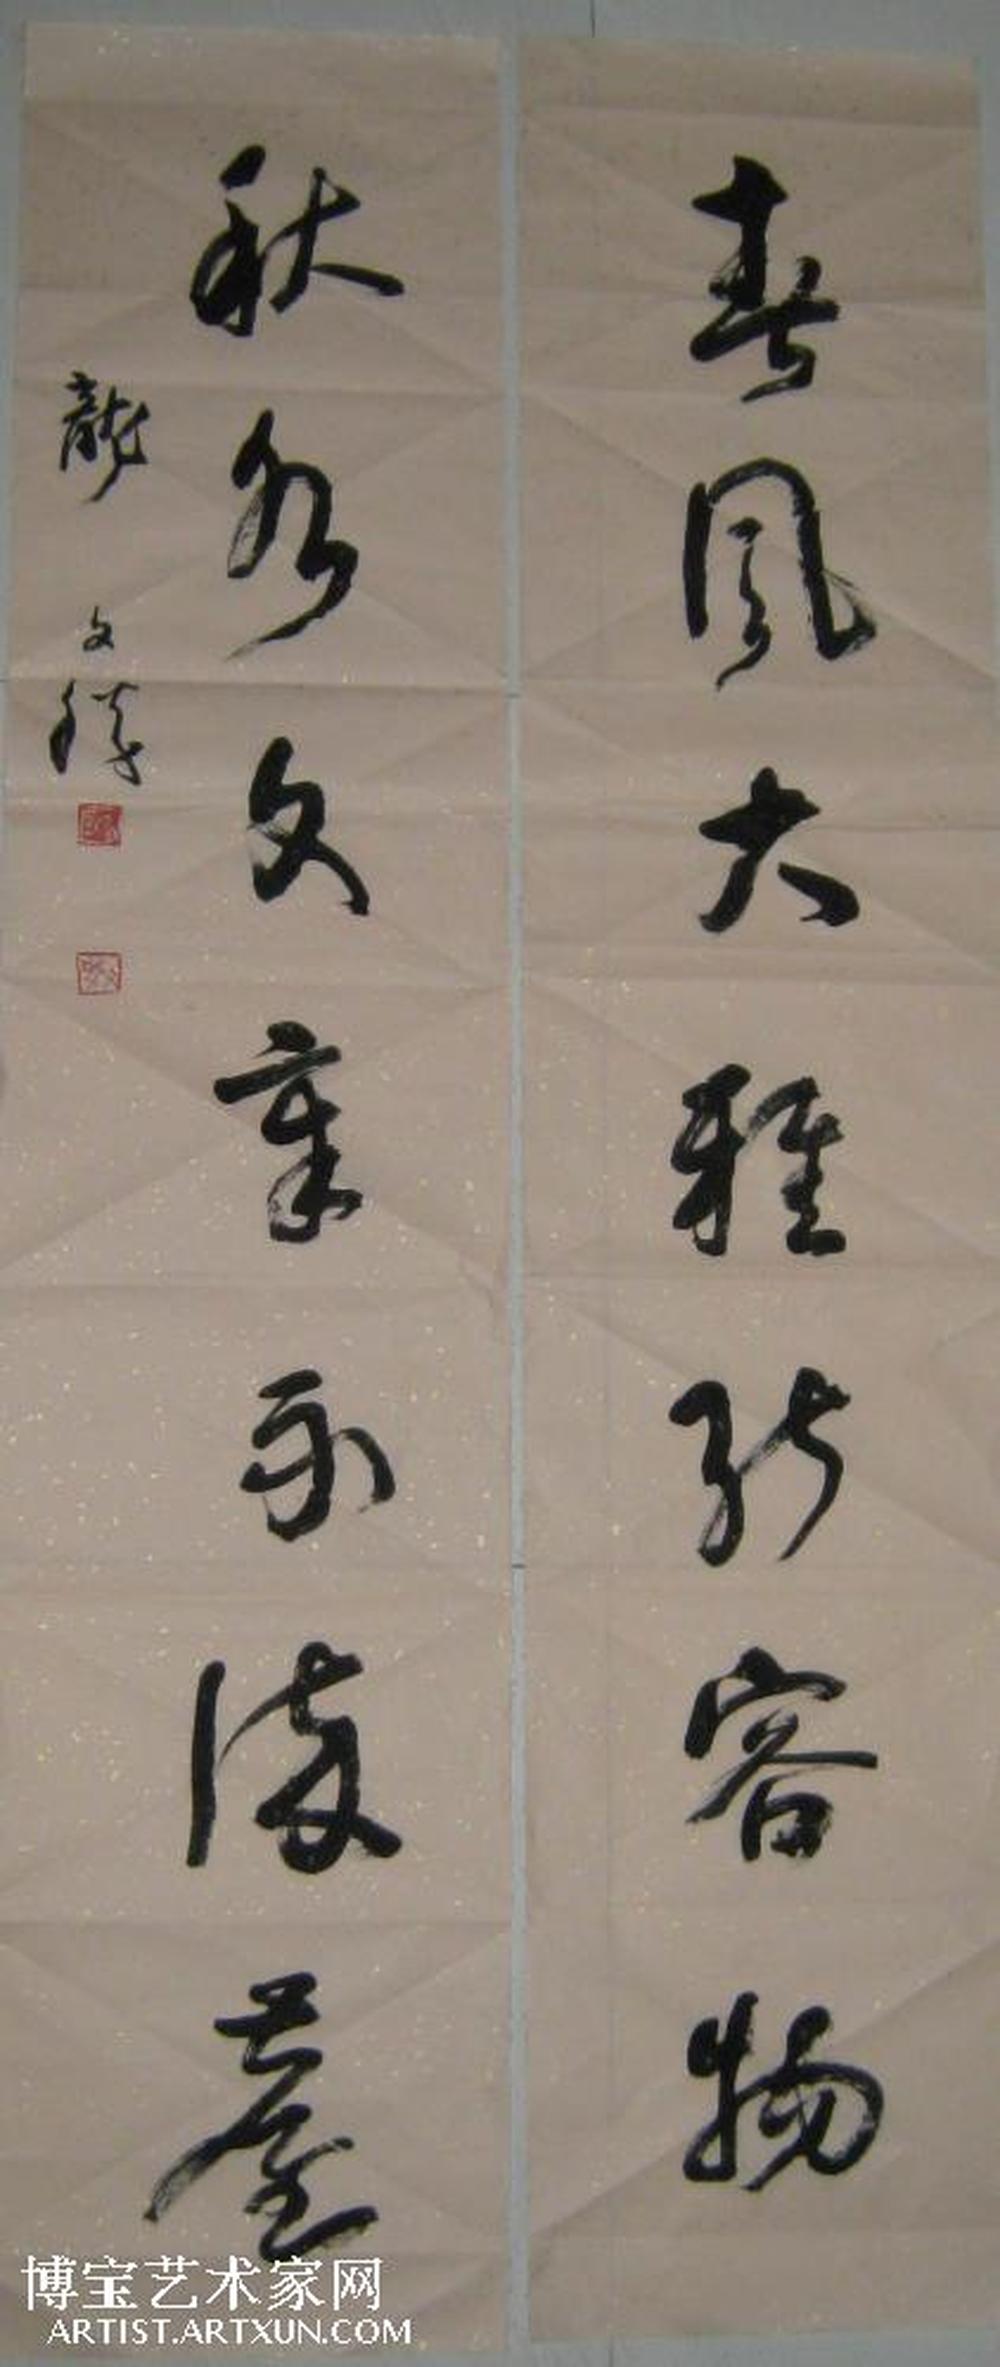 春风大雅能容物
秋水文章不染尘
龚
文
博宝艺术家网
ARTIST.ARTXUN.COM